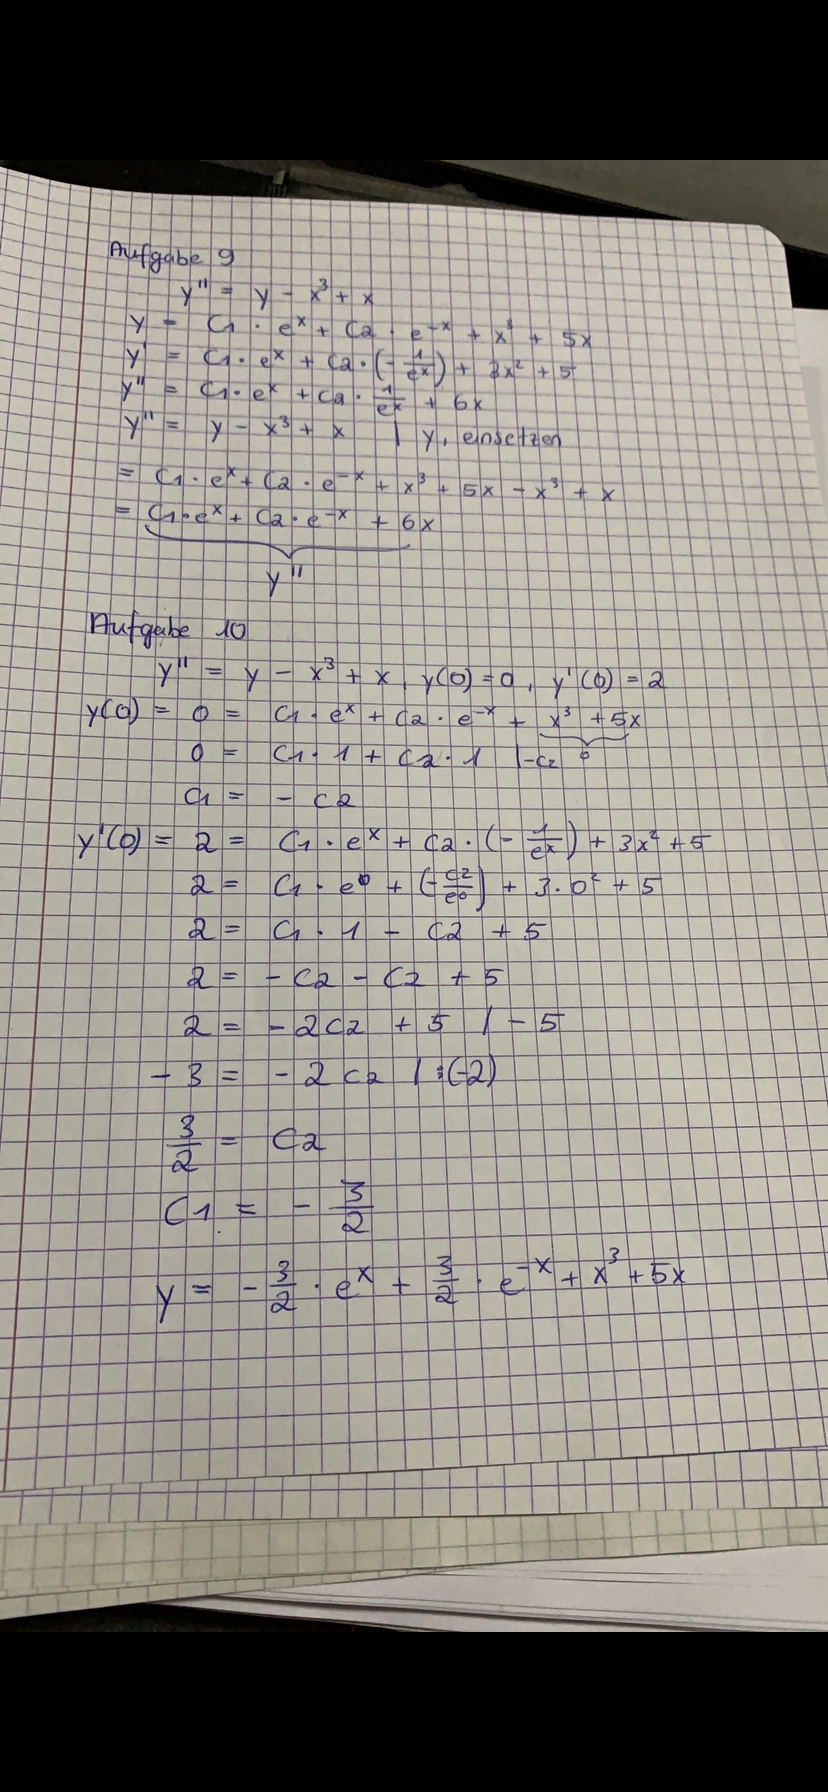 Aufgabe 9
y'' = y - x³ + x
y = C1 · eˣ + C2 · e⁻ˣ + x³ + 5x
y' = C1 · eˣ + C2 · (- 1/eˣ) + 3x² + 5
y'' = C1 · eˣ + C2 · 1/eˣ + 6x
y'' = y - x³ + x | y, einsetzen
= C1 · eˣ + C2 · e⁻ˣ + x³ + 5x - x³ + x
= C1 · eˣ + C2 · e⁻ˣ + 6x
y''
Aufgabe 10
y'' = y - x³ + x, y(0) = 0, y'(0) = 2
y(0) = 0 = C1 · eˣ + C2 · e⁻ˣ + x³ + 5x
0 = C1 · 1 + C2 · 1 |-C2 0
C1 = - C2
y'(0) = 2 = C1 · eˣ + C2 · (- 1/eˣ) + 3x² + 5
2 = C1 · e⁰ + (- C2/e⁰) + 3 · 0² + 5
2 = C1 · 1 - C2 + 5
2 = - C2 - C2 + 5
2 = - 2C2 + 5 | - 5
- 3 = - 2 C2 | :(-2)
3/2 = C2
C1 = - 3/2
y = - 3/2 · eˣ + 3/2 · e⁻ˣ + x³ + 5x